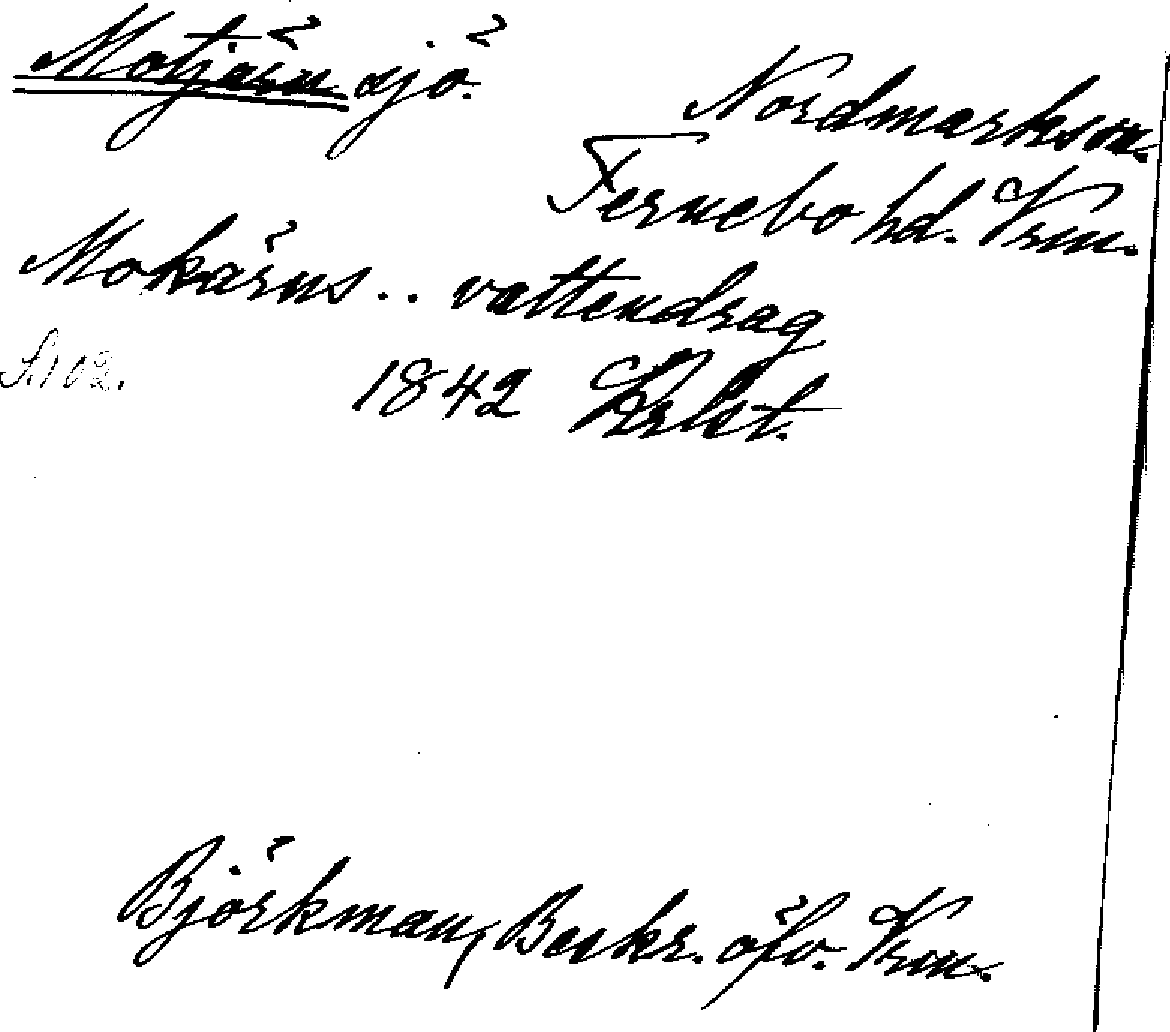 Motjärn sjö.
Nordmarks sn.
Fernebo hd. Vrm.
Mokärns .. vattendrag
S. 102.
1842 Krlst.
Björkman, Beskr. öfv. Vrm.